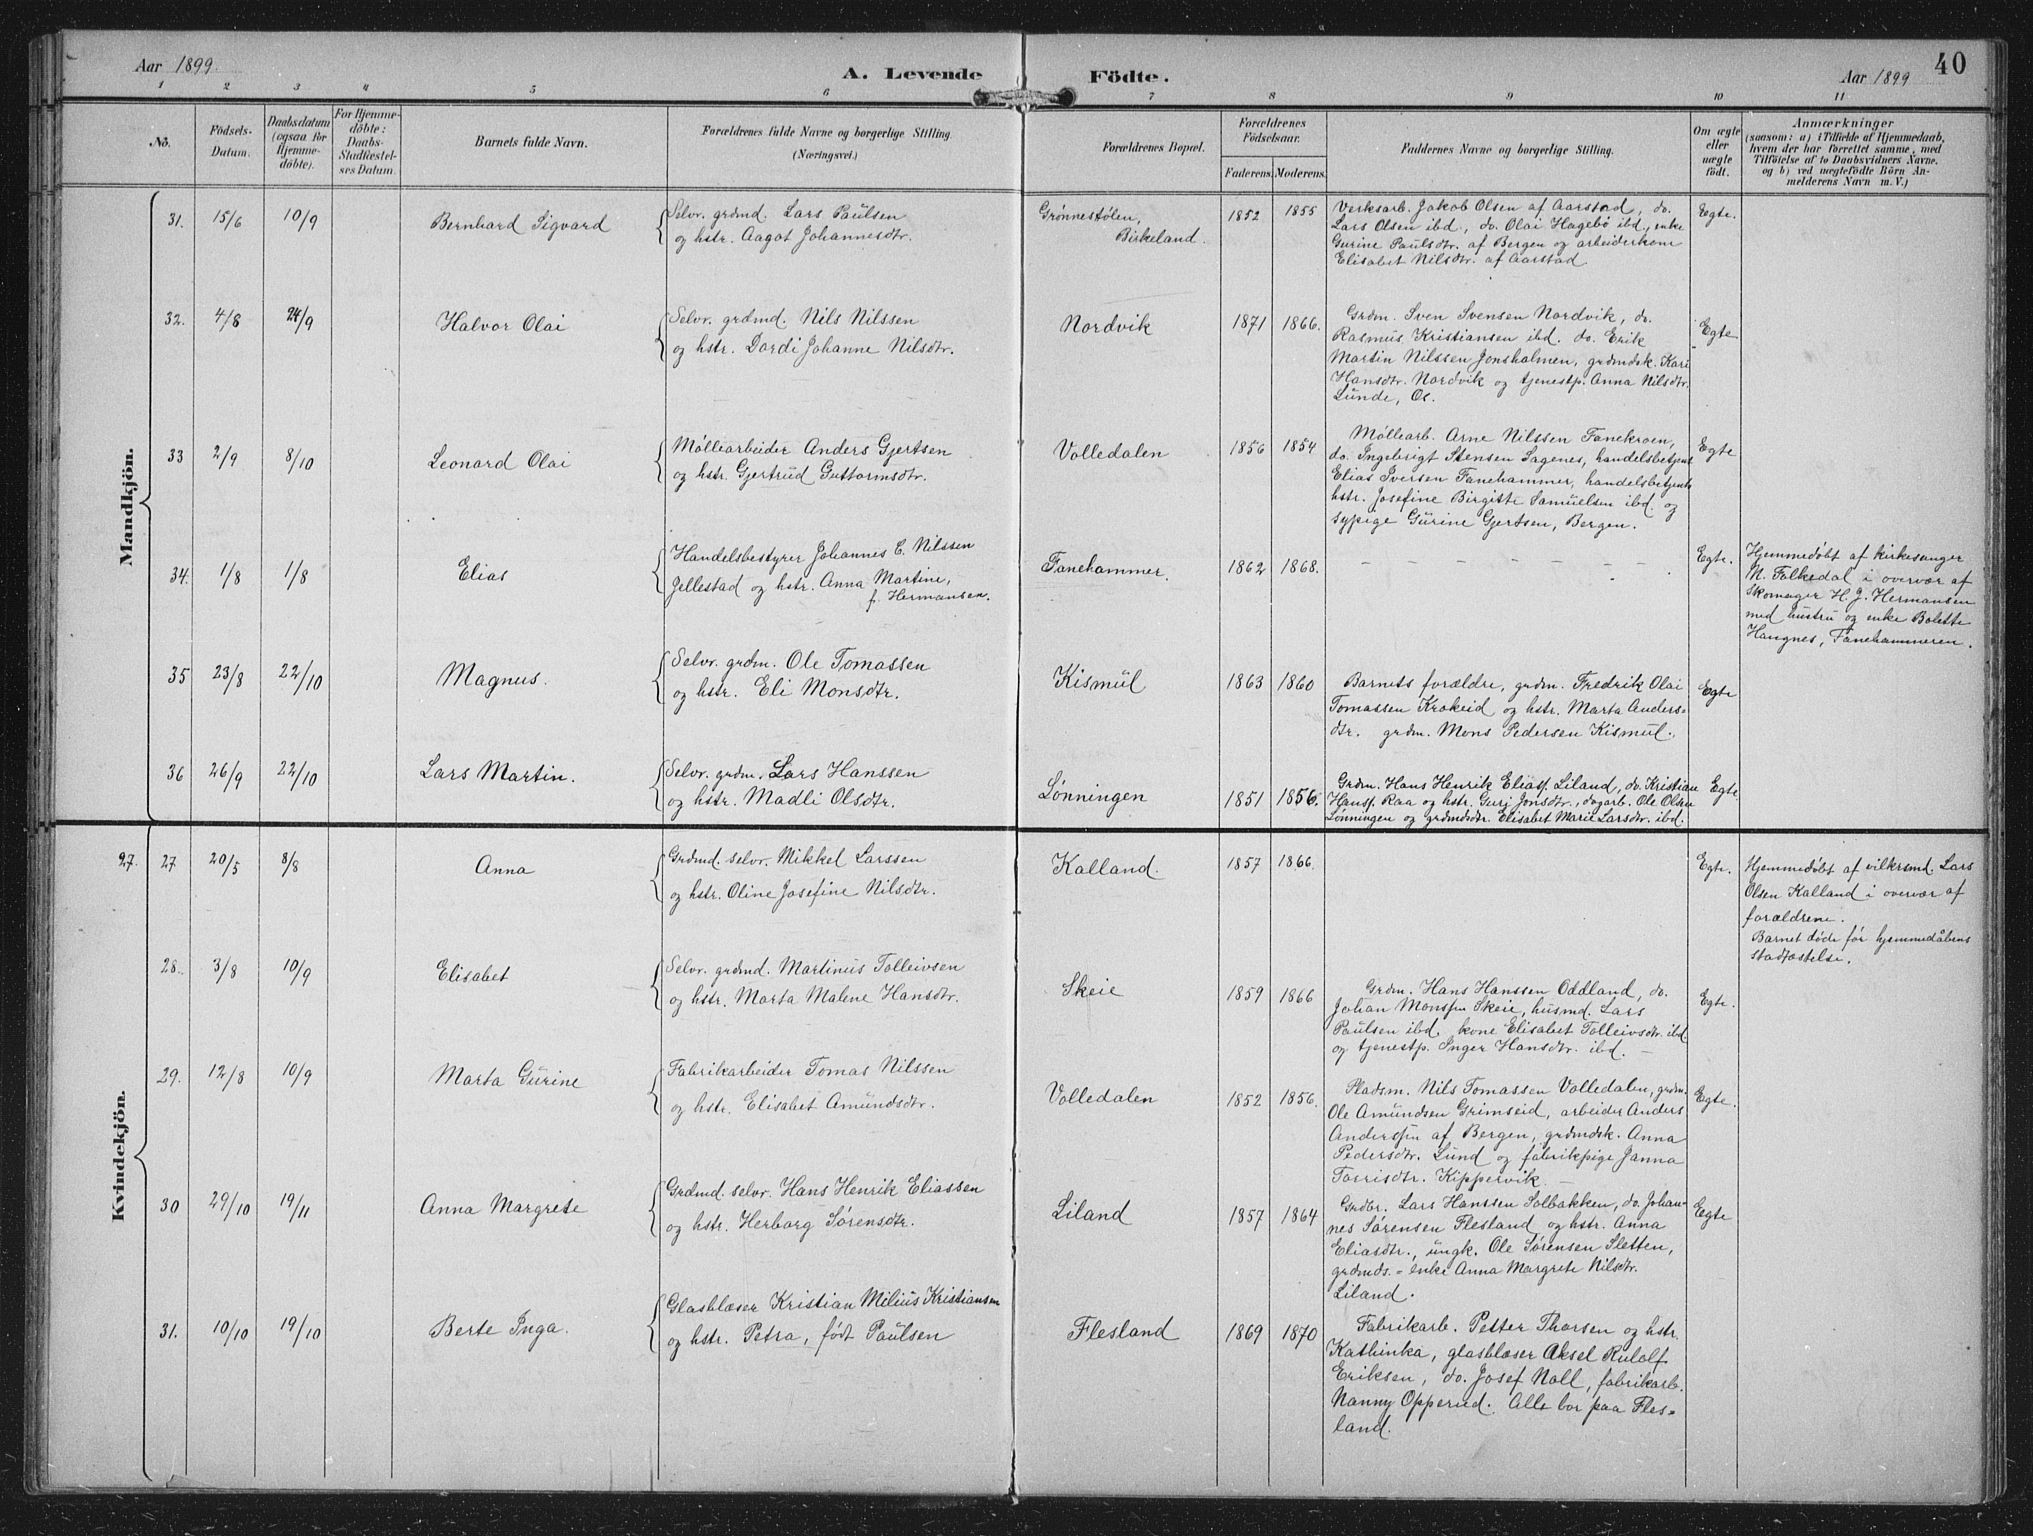 Aar 1899.
A. Levende Födte.
Aar 1899
40
1 2 3 4 5 6 7 8 9 10 11
No.
Födsels-
Datum.
Daabsdatum
(ogsaa for
Hjemme-
döbte).
For Hjemme-
döbte:
Daabs-
Stadfæstel-
ses Datum.
Barnets fulde Navn.
Forældrenes fulde Navne og borgerlige Stilling
(Næringsvei.)
Forældrenes Bopæl.
Forældrenes
Födselsaar.
Faderens. Moderens.
Faddernes Navne og borgerlige Stilling.
Om ægte
eller
uægte
födt.
Anmærkninger
(saasom: a) i Tilfælde af Hjemmedaab,
hvem der har forrettet samme, med
Tilföielse af to Daabsvidners Navne.
og b) ved uægtefödte Börn An-
melderens Navn m. V.)
Mandkjön.
31. 15/6 10/9
Bernhard Sigvard
Selv. grdmd. Lars Paulsen
og hstr. Aagot Johannesdtr.
Grønnestølen,
Birkeland.
1852 1855
Verksarb. Jakob Olsen af Aarstad, do.
Lars Olsen ibd, do. Olai Hagebø ibd., enke
Gurine Paulsdtr. af Bergen og arbeiderkone
Elisabet Nilsdtr. af Aarstad
Egte.
32. 4/8 24/9
Halvor Olai
Selv. grdmd. Nils Nilssen
og hstr. Dordi Johanne Nilsdtr.
Nordvik
1871 1866.
Grdm. Sven Svensen Nordvik, do.
Rasmus Kristiansen ibd. do. Erik
Martin Nilssen Jonsholmen, grdmdsk. Kari
Hansdtr. Nordvik og tjenestp. Anna Nilsdtr.
Lunde, Os.
Egte
33 2/9 8/10
Leonard Olai
Møllearbeider Anders Gjertsen
og hstr. Gjertrud Guttormsdtr.
Volledalen
1856 1854
Møllearb. Arne Nilssen Fanekroen,
do. Ingebrigt Stensen Sagenes, handelsbetjent
Elias Iversen Fanehammer, handelsbetjents
hstr. Josefine Birgitte Samuelsen ibd. og
sypige Gurine Gjertsen, Bergen.
Egte
34. 1/8 1/8
Elias
Handelsbestyrer Johannes C. Nilssen
Jellestad og hstr. Anna Martine,
f. Hermansen.
Fanehammer.
1862 1868.
– – – – – – –
Egte.
Hjemmedøbt af kirkesanger
N. Folkedal i overvær af
skomager H. J. Hermansen
med hustru og enke Bolette
Haugnes, Fanehammeren.
35 23/8 22/10
Magnus.
Selv. grdm. Ole Tomassen
og hstr. Eli Monsdtr.
Kismul
1863 1860
Barnets forældre, grdm. Fredrik Olai
Tomassen Krokeid og hstr. Marta Anders-
dtr. grdm. Mons Pedersen Kismul.
Egte
36 26/9 22/10
Lars Martin.
Selv. grdm. Lars Hanssen
og hstr. Madli Olsdtr.
Lønningen
1851 1856.
Grdm. Hans Henrik Eliass. Liland, do. Kristian
Hanss. Raa og hstr. Guri Jonsdtr., dagarb. Ole Olsen
Lønningen og grdmdsdtr. Elisabet Marie Larsdtr. ibd.
Egte.
Kvindekjön.
27. 27. 20/5 8/8
Anna
Grdmd. selv. Mikkel Larssen
og hstr. Oline Josefine Nilsdtr.
Kalland.
1857 1866.
Egte.
Hjemmedøbt af vilkrsmd. Lars
Olsen Kalland i overvær af
forældrene.
Barnet døde før hjemmedåbens
stadfæstelse.
28. 3/8 10/9
Elisabet
Selv. grdmd. Martinus Tolleivsen
og hstr. Marta Malene Hansdtr.
Skeie
1859 1866
Grdm. Hans Hanssen Oddland, do.
Johan Monssen Skeie, husmd. Lars
Paulsen ibd. kone Elisabet Tolleivsdtr. ibd
og tjenestp. Inger Hansdtr. ibd. –
Egte.
29. 12/8 10/9
Marta Gurine
Fabrikarbeider Tomas Nilssen
og hstr. Elisabet Amundsdtr.
Volledalen
1852 1856.
Pladsm. Nils Tomassen Volledalen, grdm.
Ole Amundsen Grimseid, arbeider Anders
Anderssen af Bergen, grdmdsk. Anna
Pedersdtr. Lund og fabrikpige Janna
Torrisdtr. Kippervik. –
Egte.
30 29/10 19/11
Anna Margrete
Grdmd. selv. Hans Henrik Eliassen
og hstr. Herborg Sørensdtr.
Liland
1857 1864
Grdbr. Lars Hanssen Solbakken, do. Johan-
nes Sørensen Flesland og hstr. Anna
Eliasdtr., ungk. Ole Sørensen Sletten,
grdmds. - enke Anna Margrete Nilsdtr.
Liland.
Egte
31. 10/10 19/10
Berte Inga.
Glasblæser Kristian Milius Kristiansen
og hstr. Petra, født Paulsen
Flesland
1869 1870
Fabrikarb. Petter Thorsen og hstr.
Kathinka, glasblæser Aksel Rudolf
Eriksen, do. Josef Noll, fabrikarb.
Nanny Opperud. Alle bor paa Fles-
land.